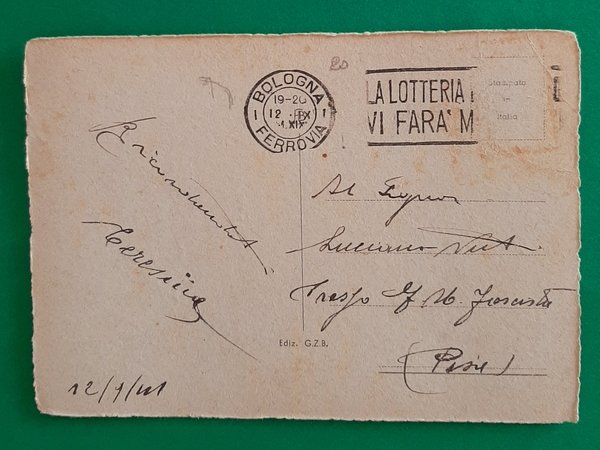 20
BOLOGNA
19-20
12
XIX
FERROVIA
LA LOTTERIA
VI FARA' M
Stampato
in
Italia
Ricordandoti
Teresina
Al Signor
Luciano
Presso
(Pisa)
Ediz. G.Z.B.
12/9/41